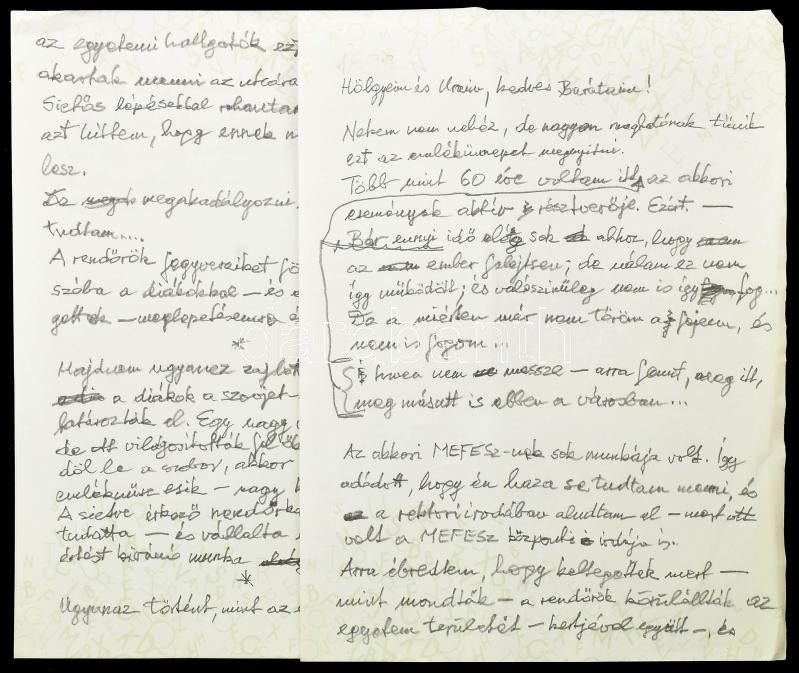 az egyetemi hallgatók
akartak menni az utcára
Sietős lépésekkel rohantam
azt hittem, hogy ennek
lesz.
De megakadályozni
tudtam....
A rendőrök fegyvereiket
szóba a diákokkal — és
— meglepetésemre
*
Majdnem ugyanez zajlott
a diákok a szovjet-
határozták el. Egy nagy
de ott világosították fel
dől le a szobor, akkor
emlékműre esik — nagy
A sietve érkező rendőrka
tudatta — és vállalta
értést kizáró munka
*
Ugyanaz történt, mint az
Hölgyeim és Uraim, kedves Barátaim!
Nekem nem nehéz, de nagyon meghatónak tűnik
ezt az emlékünnepet megnyitni.
Több mint 60 éve voltam itt az akkori
események aktív résztvevője. Ezért. —
Bár ennyi idő elég sok ahhoz, hogy
az ember felejtsen; de nálam ez nem
így működött; és valószínűleg nem is így fog...
De a miérten már nem töröm a fejem, és
nem is fogom...
és hova nem messze — arra fent, meg itt,
meg másutt is ebben a városban...
Az akkori MEFESZ-nek sok munkája volt. Így
adódott, hogy én haza se tudtam menni, és
a rektori irodában aludtam el — mert ott
volt a MEFESZ központi irodája is.
Arra ébredtem, hogy keltegettek mert —
mint mondták — a rendőrök körülállták az
egyetem területét — kertjével együtt —, és
darabanth